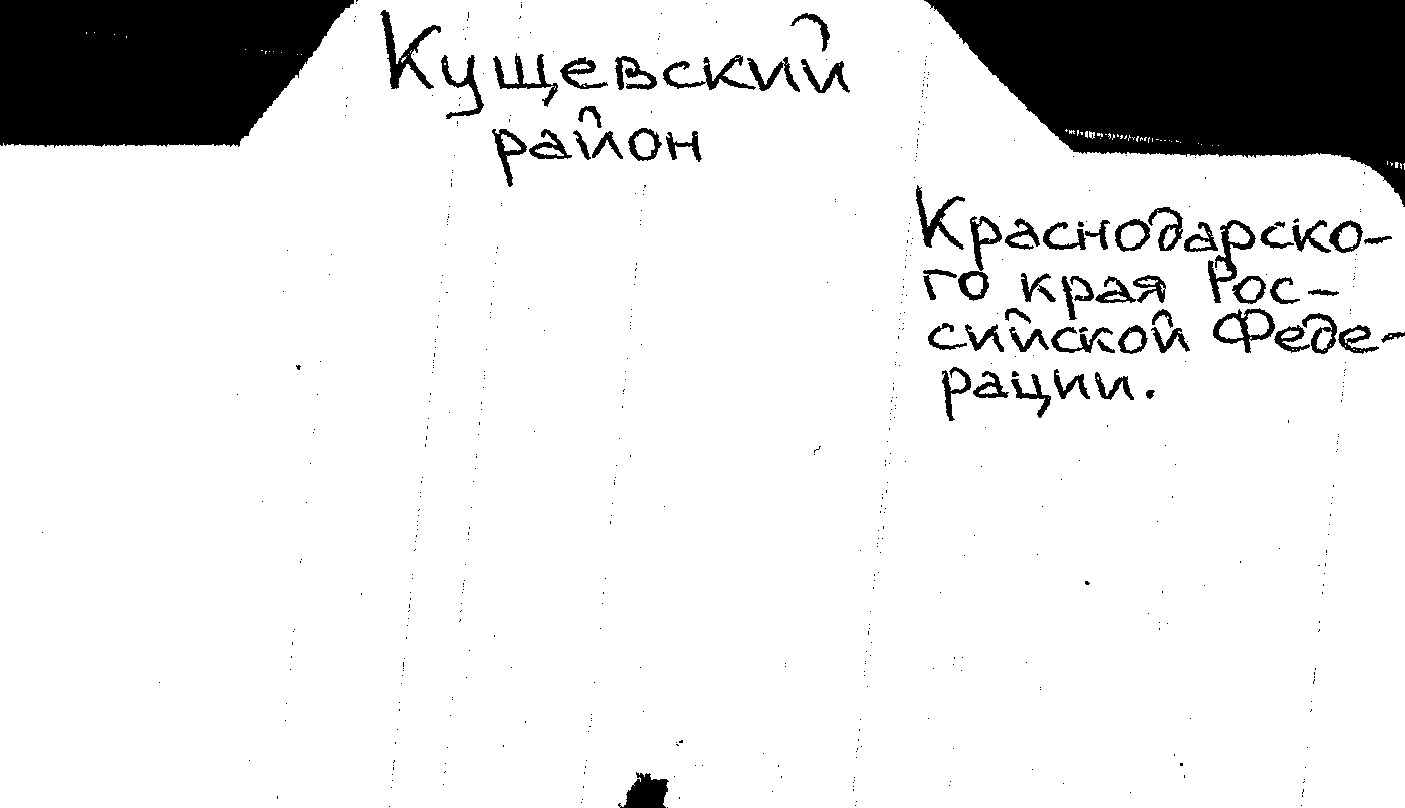 Кущевский
район
Краснодарско-
го края Рос-
сийской Феде-
рации.